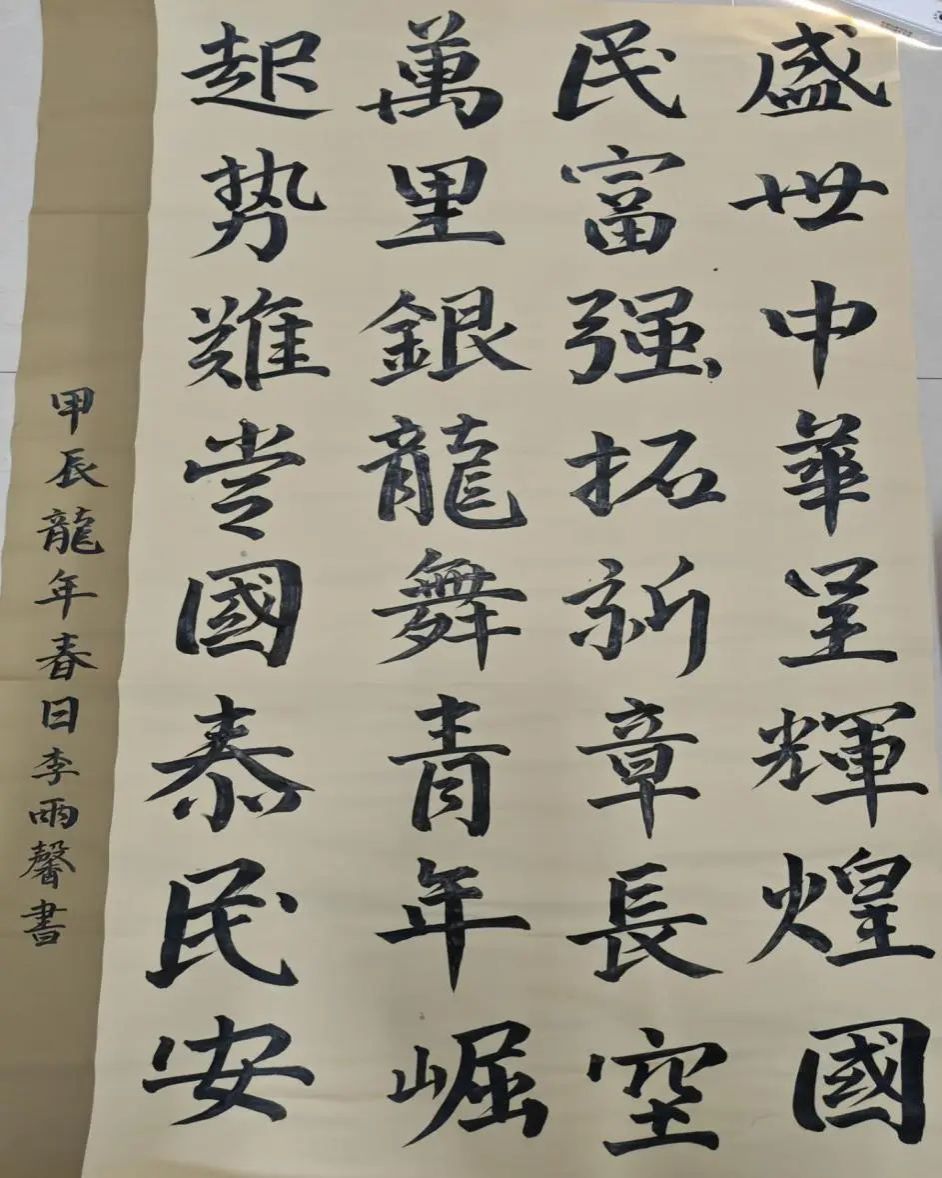 盛世中華呈輝煌國
民富强拓新章長空
萬里銀龍舞青年崛
起势難當國泰民安
甲辰龍年春日李雨馨書